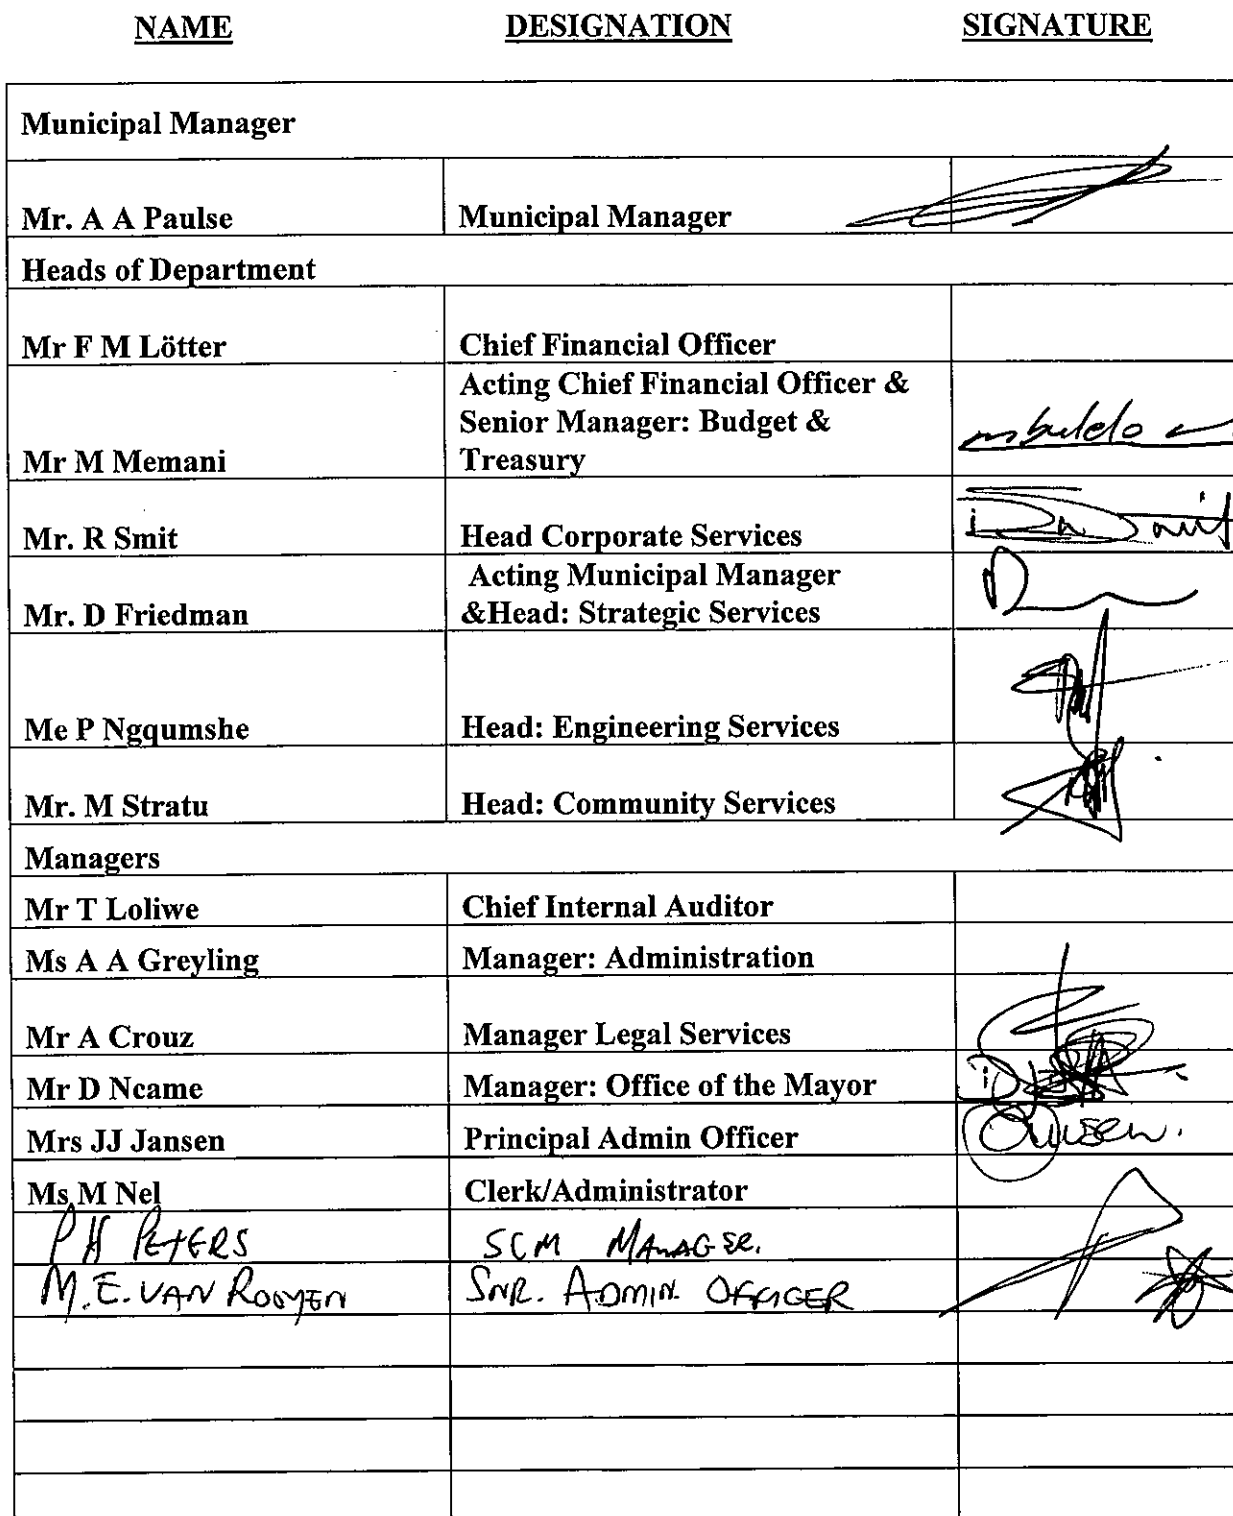 NAME DESIGNATION SIGNATURE
Municipal Manager
Mr. A A Paulse Municipal Manager
Heads of Department
Mr F M Lötter Chief Financial Officer
Acting Chief Financial Officer &
Senior Manager: Budget &
Mr M Memani Treasury
Mr. R Smit Head Corporate Services
Acting Municipal Manager
Mr. D Friedman &Head: Strategic Services
Me P Ngqumshe Head: Engineering Services
Mr. M Stratu Head: Community Services
Managers
Mr T Loliwe Chief Internal Auditor
Ms A A Greyling Manager: Administration
Mr A Crouz Manager Legal Services
Mr D Ncame Manager: Office of the Mayor
Mrs JJ Jansen Principal Admin Officer
Ms M Nel Clerk/Administrator
P H PETERS SCM MANAGER.
M.E. VAN ROOYEN SNR. ADMIN. OFFICER